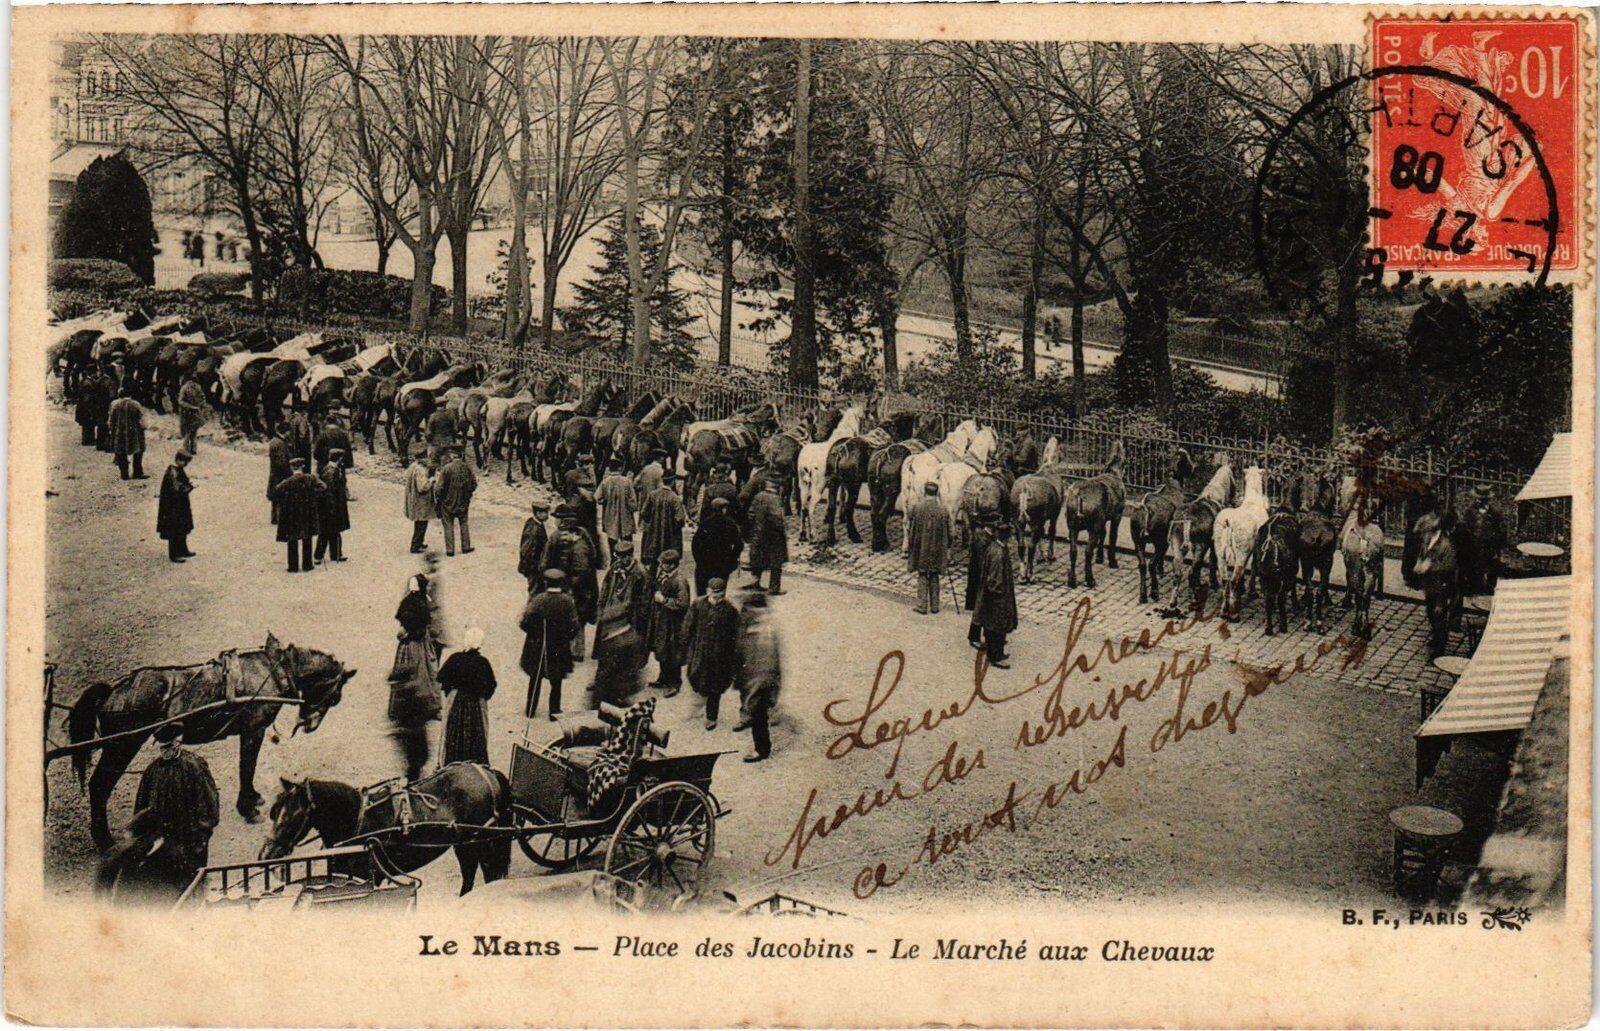 10c
POSTES
REPUBLIQUE FRANÇAISE
SARTHE
27
08
Lequel prend
pour des
ce sont nos
B. F., PARIS
Le Mans — Place des Jacobins - Le Marché aux Chevaux